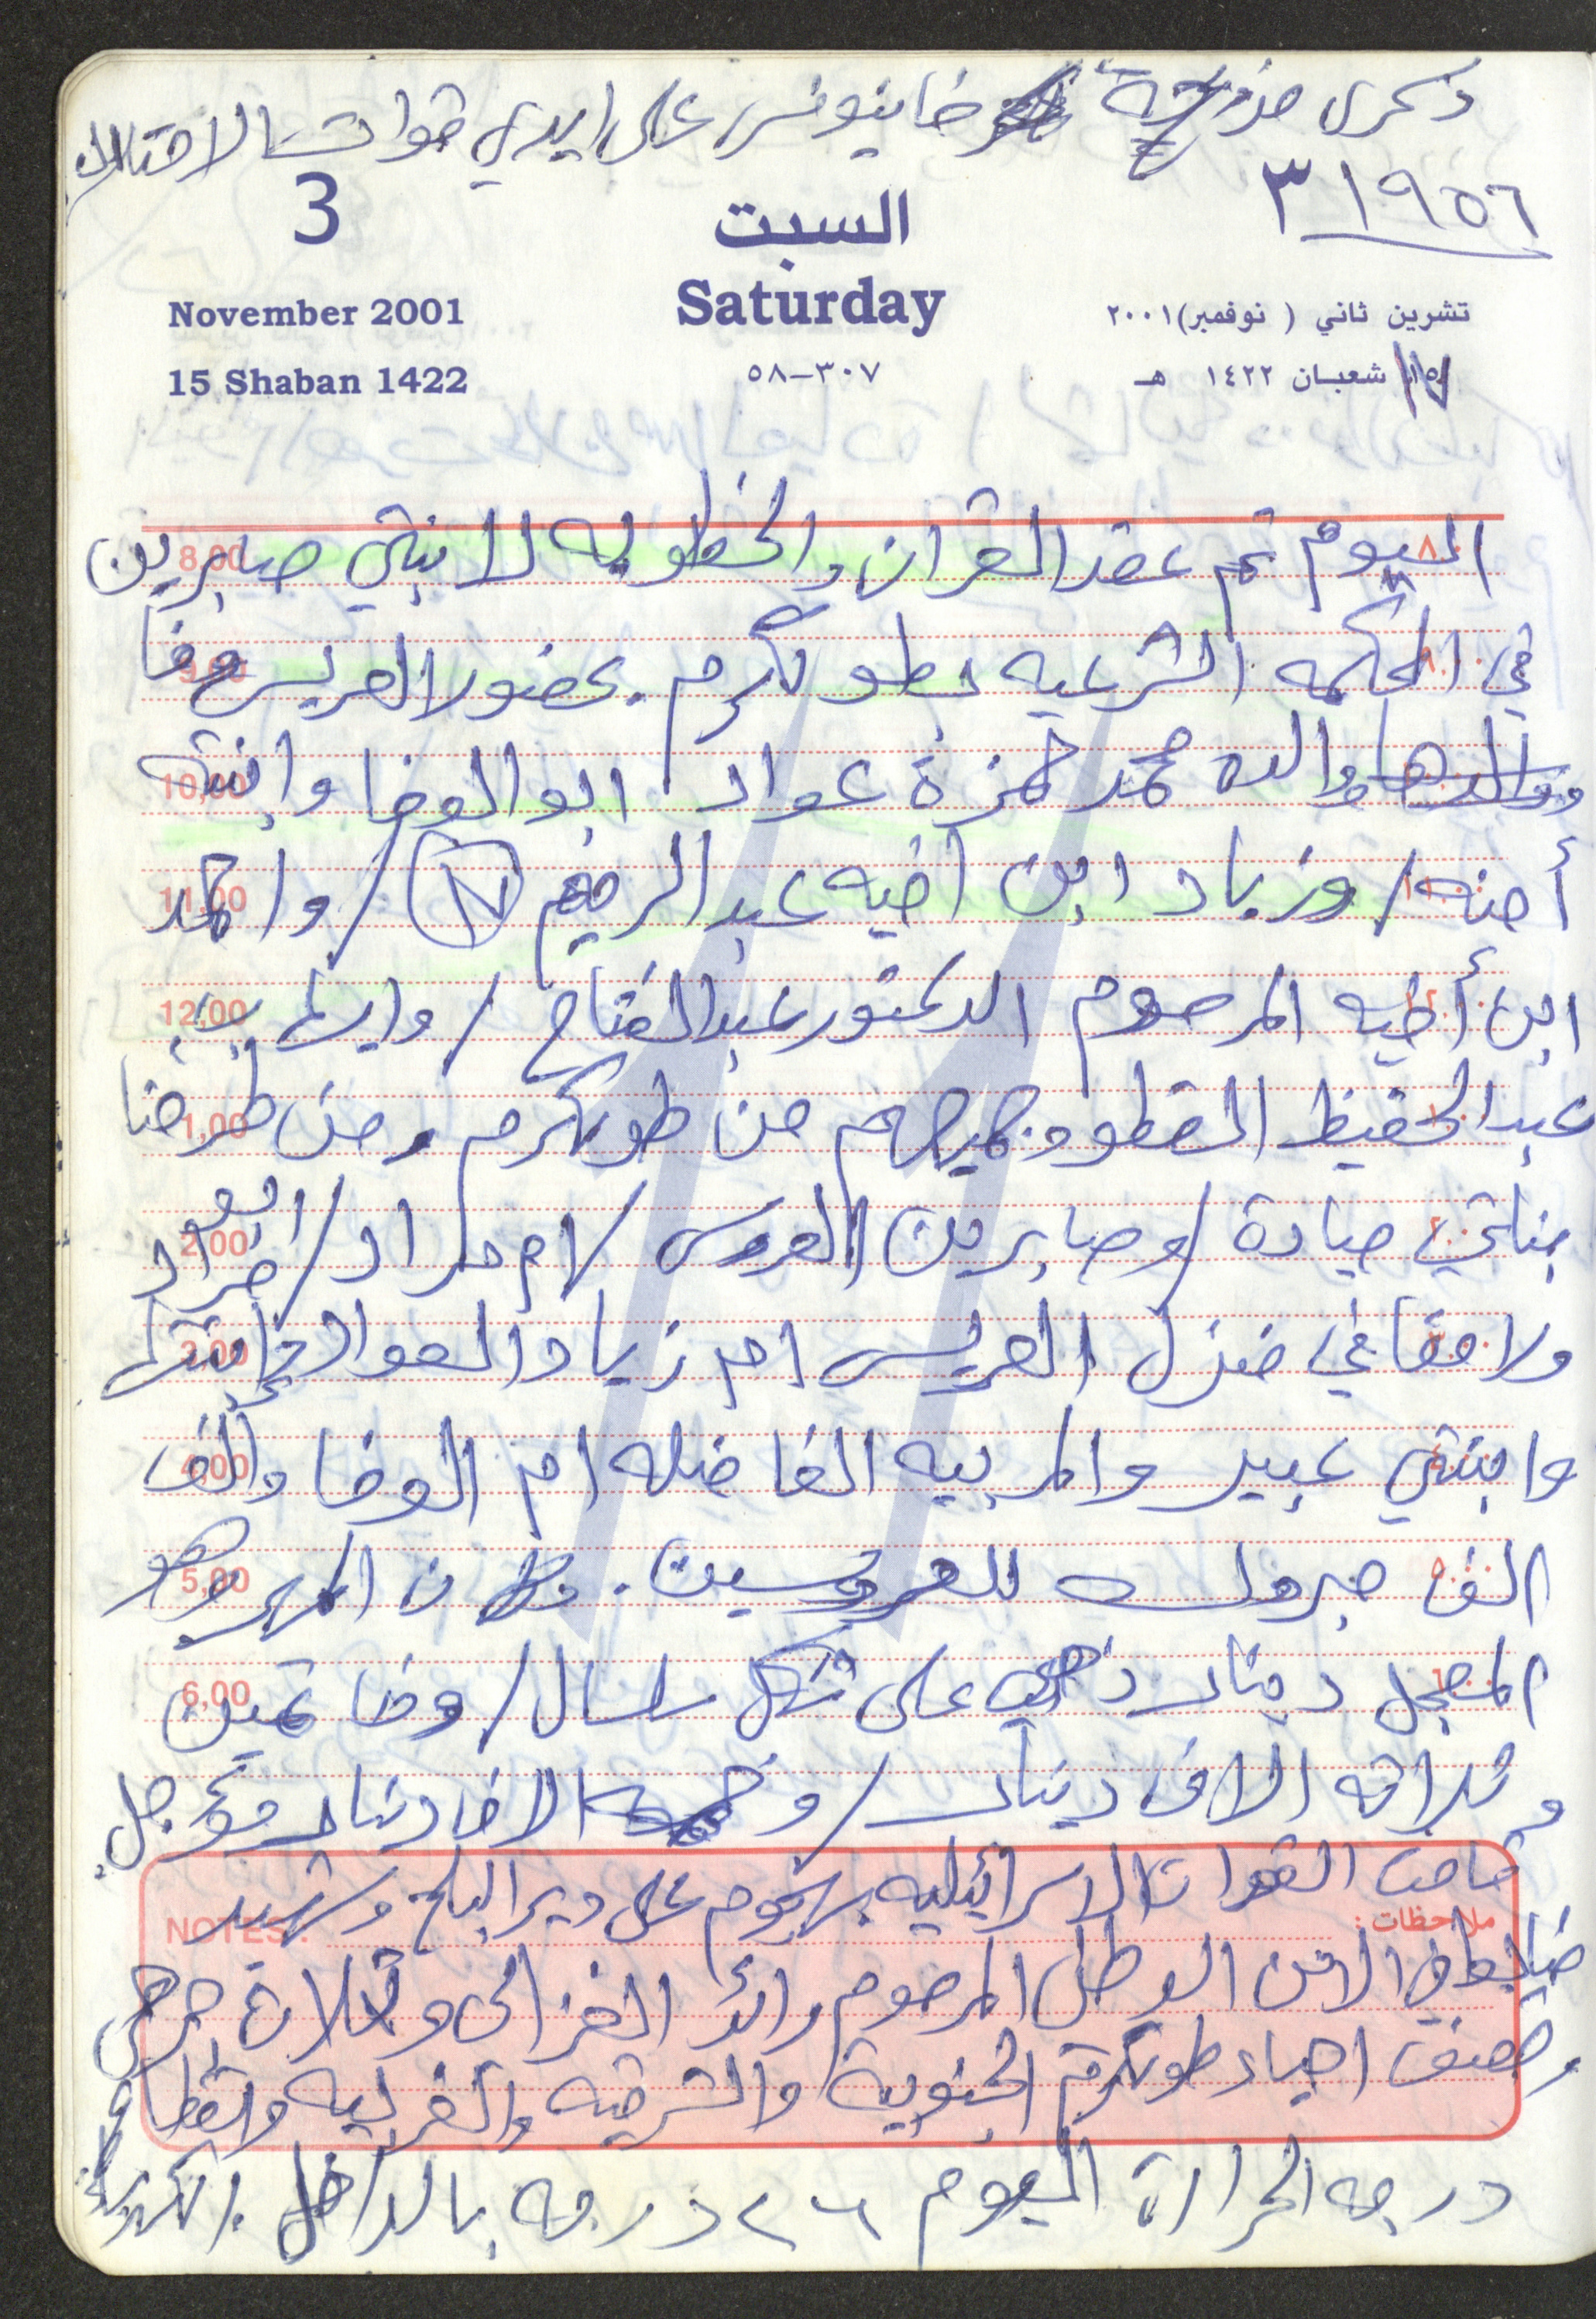 ذكرى مذبحة خانيونس على ايدي قوات الاحتلال
٣ ١٩٥٦
3
السبت
Saturday
November 2001
تشرين ثاني ( نوفمبر)٢٠٠١
15 Shaban 1422
٥٨-٣٠٧
١٥ شعبان ١٤٢٢ هـ
اليوم تم عقد القران والخطوبه لابنتي صابرين
8,00
في المحكمه الشرعيه بطولكرم بحضور العريس وفا
9,00
ووالدها والده محمد حمزة عواد ابو الوفا وابنته
10,00
أمنه/ وزياد ابن اخيه عبد الرحيم /واحمد
11,00
ابن أخيه المرحوم الدكتور عبد الفتاح /
12,00
عبد الحفيظ القطو وجميعهم من طولكرم ومن طرفنا
1,00
بناتي ميادة /وصابرين العروس /ام مراد/ابو مراد
2,00
ولاحقا في منزل العريس ام زياد العواد
3,00
وابنتي عبير والمربيه الفاضله ام الوفا والف
4,00
الف مبروك للعروسين. وكان المهر وهو
5,00
المعجل دينار ذهبي على شكل /وخاتمين
6,00
وثلاثه الاف دينار /وخمسه الاف دينار مؤجل
قامت القوات الاسرائيليه بهجوم على دير البلح وستشهد
NOTES:
ملاحظات :
ضابط في الامن الوطني المرحوم رائد الغزالي وثلاثة جرحى
وقصف احياء طولكرم الجنوبية والشرقيه والغربيه وانقطاع
درجه الحرارة اليوم ٢٦ درجه بالداخل الكهرباء